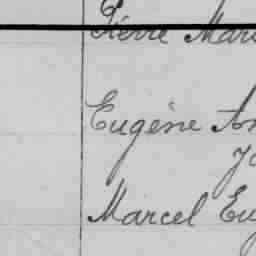 Pierre Mar
Eugène An
Marcel Eu